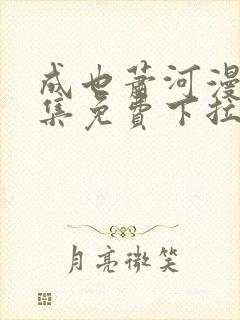 成也萧河漫
集免費下拉
月亮微笑